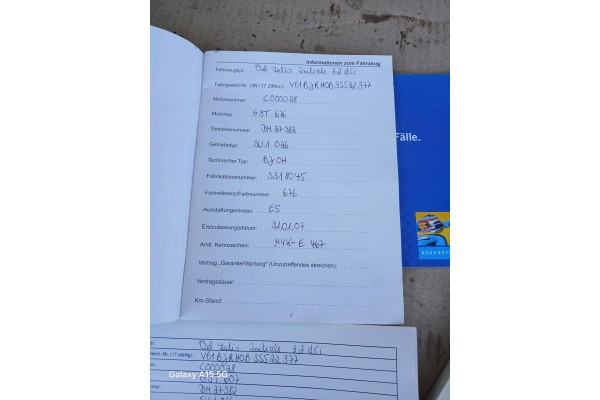 Informationen zum Fahrzeug
Fahrzeugtyp: Vel Satis Initiale 2.2 dCi
Fahrgestell-Nr. VIN (17 Ziffern): VF1BJRH0B35522377
Motornummer: C000028
Motortyp: G9T 676
Getriebenummer: DM 27982
Getriebetyp: SU1 026
Technischer Typ: BJ0H
Fabrikationsnummer: S318045
Farbreferenz/Farbnummer: 676
Ausstattungsniveau: E5
Erstzulassungsdatum: 31.01.07
Amtl. Kennzeichen: MYK-E 467
Vertrag „Garantie/Wartung" (Unzutreffendes streichen):
Vertragsdauer:
Km-Stand:
1
Fälle.
Vel Satis Initiale 2.2 dCi
VF1BJRH0B35522377
C000028
DM 27982
Galaxy A15 5G